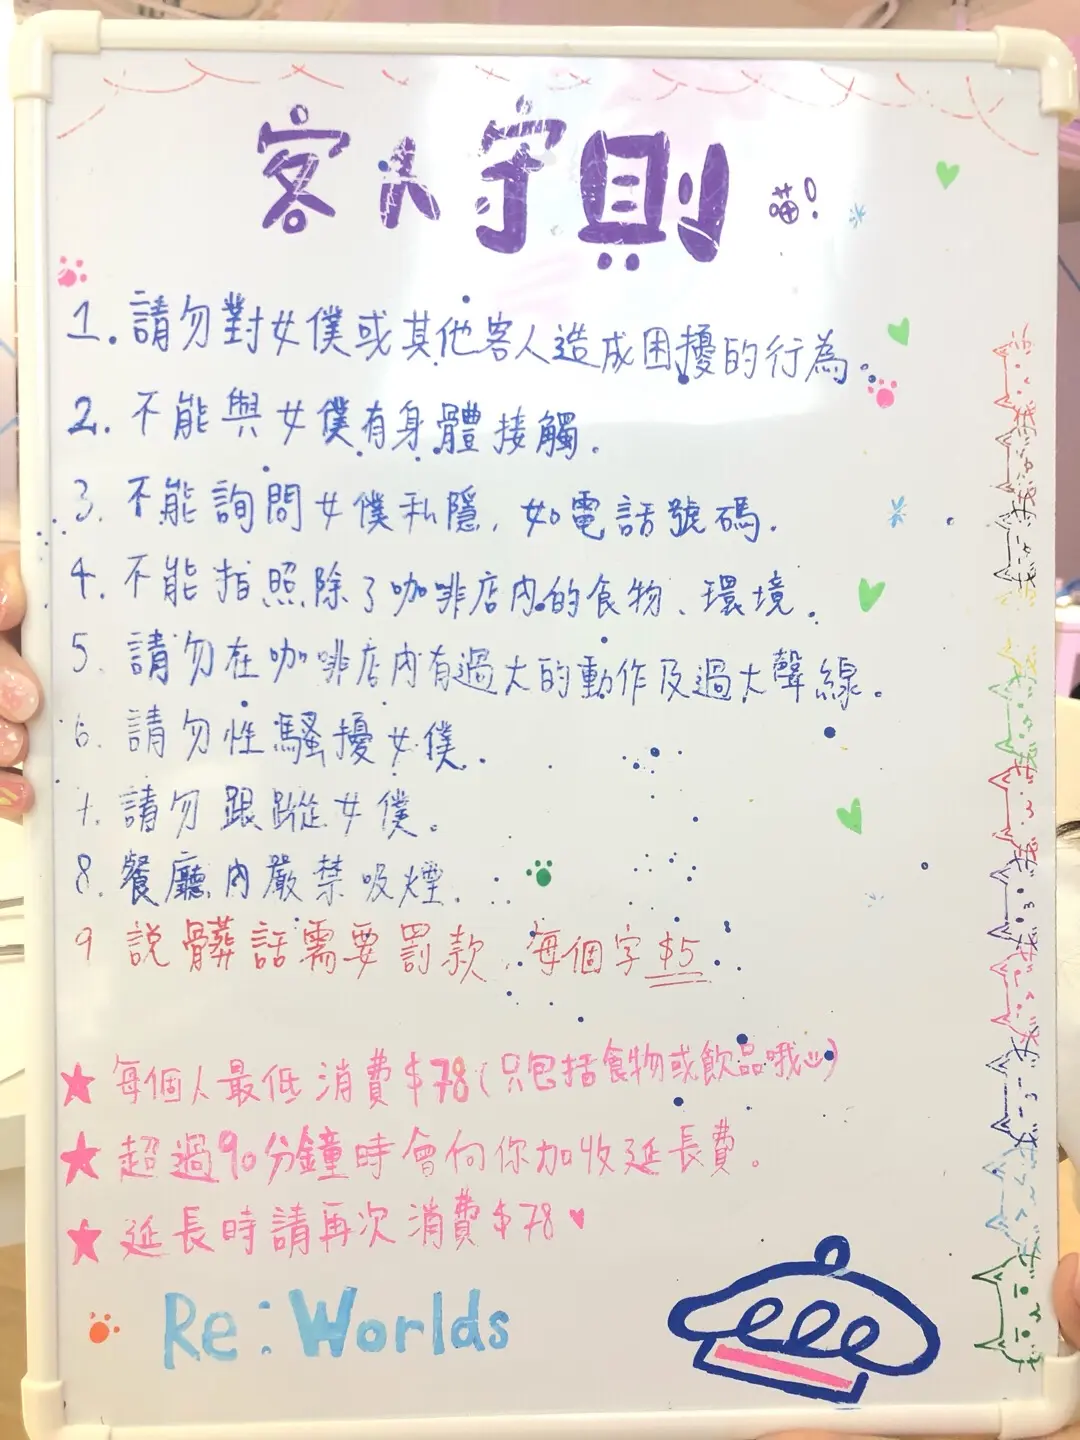 客人守則 喵!
1. 請勿對女僕或其他客人造成困擾的行為。
2. 不能與女僕有身體接觸.
3. 不能詢問女僕私隱, 如電話號碼.
4. 不能拍照除了咖啡店內的食物、環境.
5. 請勿在咖啡店內有過大的動作及過大聲線.
6. 請勿性騷擾女僕.
7. 請勿跟蹤女僕。
8. 餐廳內嚴禁吸煙.
9 説髒話需要罰款, 每個字$5
★ 每個人最低消費$78(只包括食物或飲品哦)
★ 超過90分鐘時會向你加收延長費。
★ 延長時請再次消費$78♥
Re:Worlds